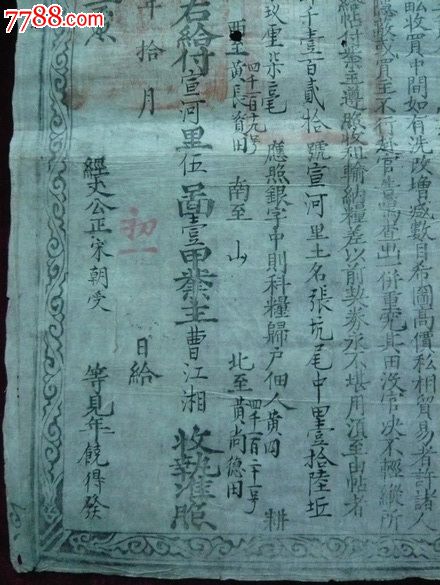 7788.com
畝收買中間如有洗改增減數目希圖高價私相貿易者許諸人
隱敵或買主不行赴官告查出一併重究其田沒官決不輕縱所
帖付業主遵照收租輸納糧差以前契劵永不堪用須至由帖者
千壹百貳拾號宣河里土名張坑尾中里壹拾陸坵
玖畢柒毫 應照銀字中則科糧歸戶佃人黃四 耕
西至黃長首田 南至山 北至黃尚德田
四千一百九号 四千一百二十一号
右給付宣河里伍啚壹甲業主曹江湘 收執準照
年拾月 初一 日給
經丈公正宋朝受 等見年饒得發
照